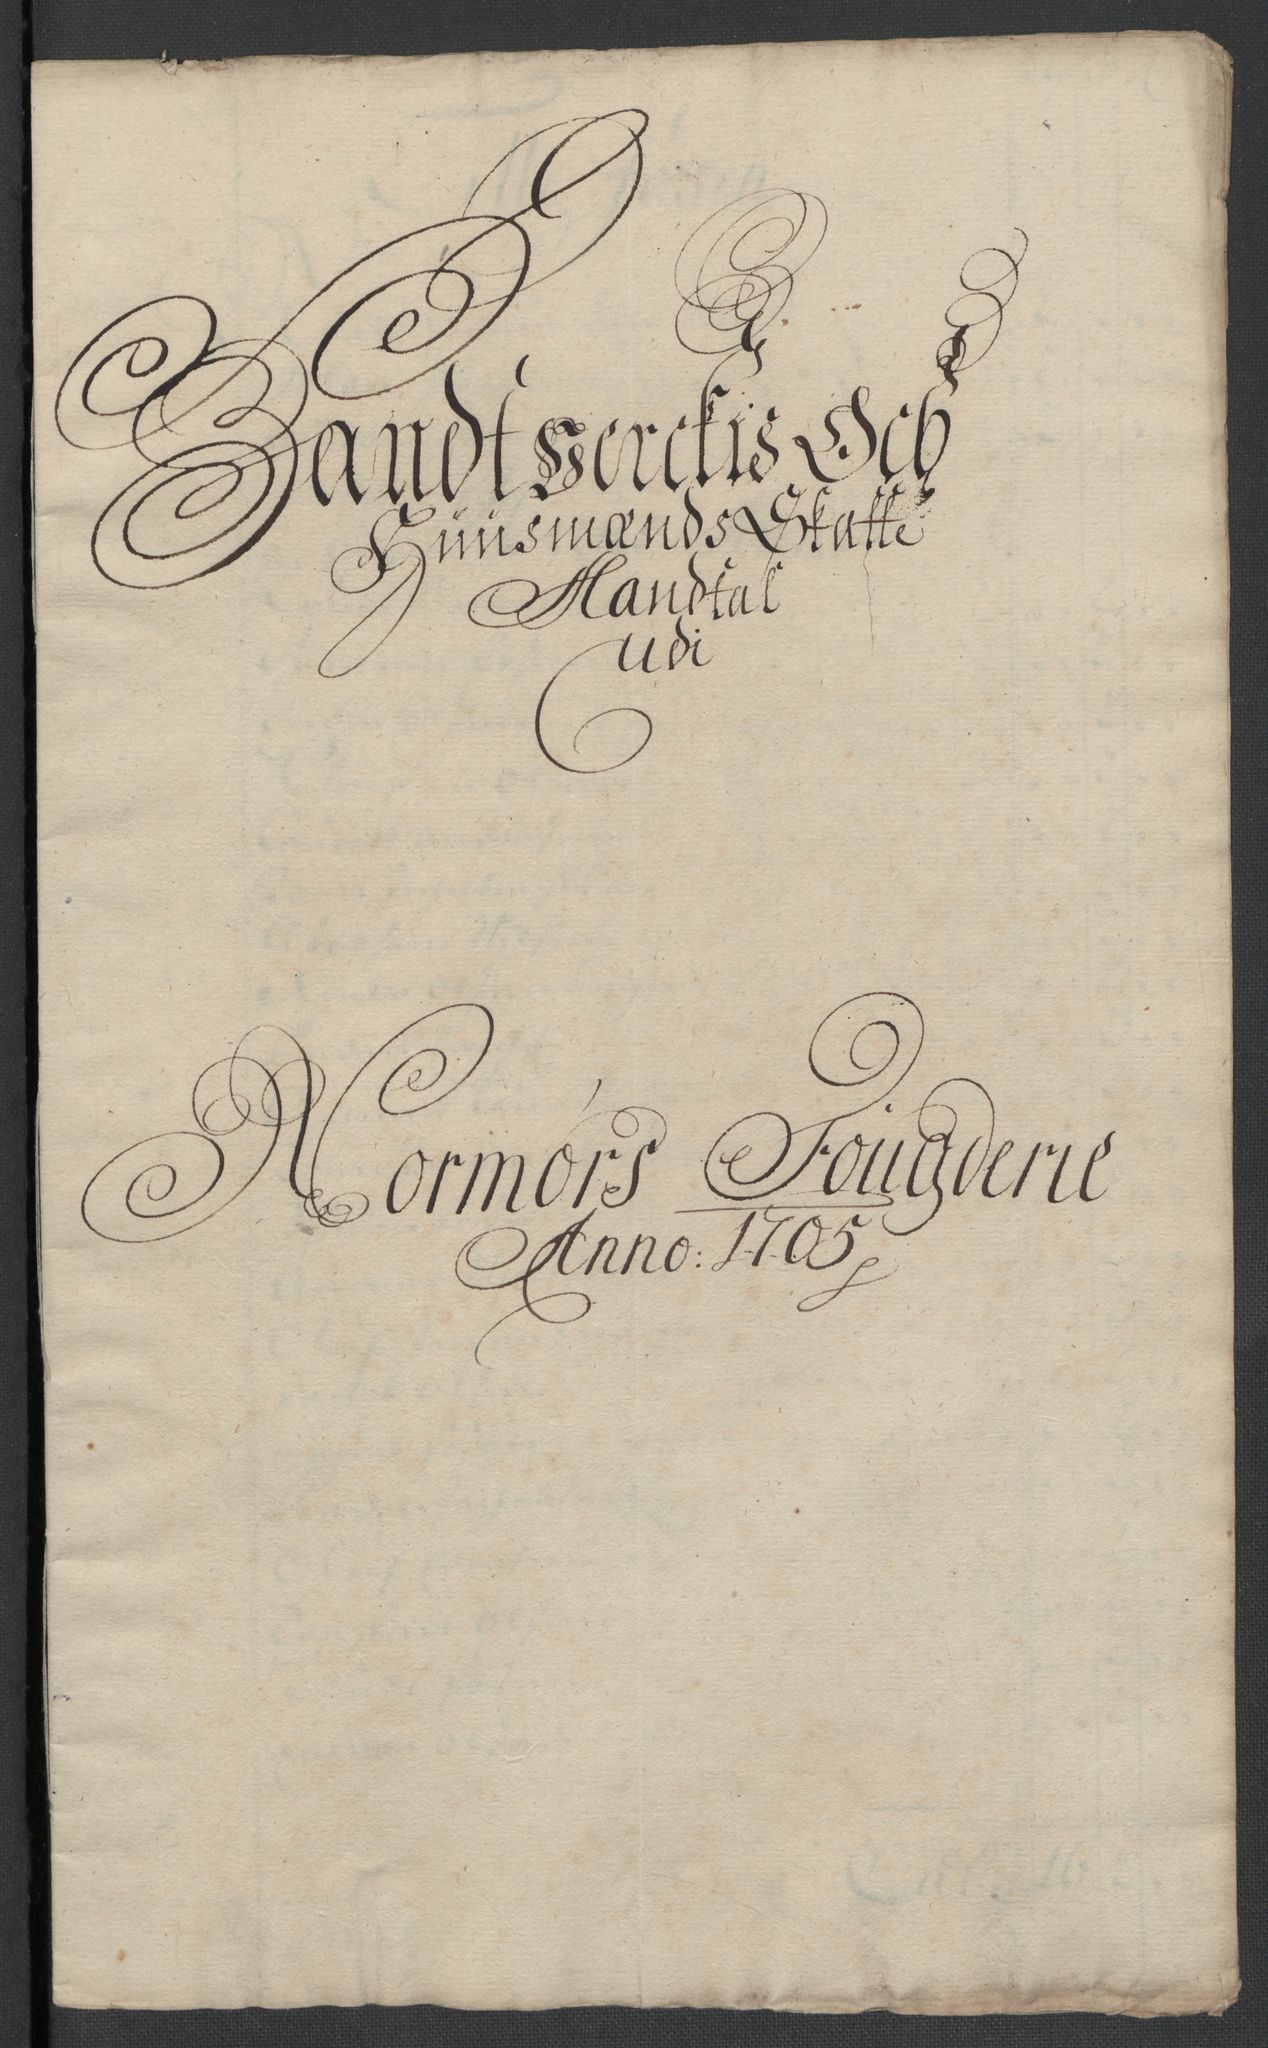 Handtverckis Och
Huusmænds Skatte
Mandtal
udi
Normørs Fougderie
Anno: 1705